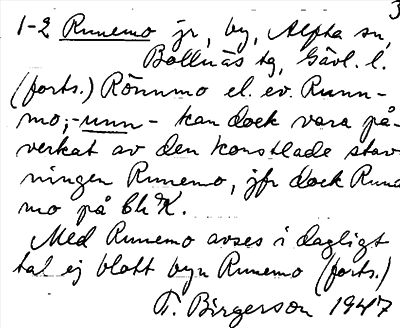 3
1-2 Runemo jr, by, Alfta sn,
Bollnäs tg, Gävl. l.
(forts.) Rönnmo el. ev. Runn-
mo; -unn- kan dock vara på-
verkat av den konstlade stav-
ningen Runemo, jfr dock Runa
mo på
Med Runemo avses i dagligt
tal ej blott byn Runemo (forts.)
T. Birgerson 1947